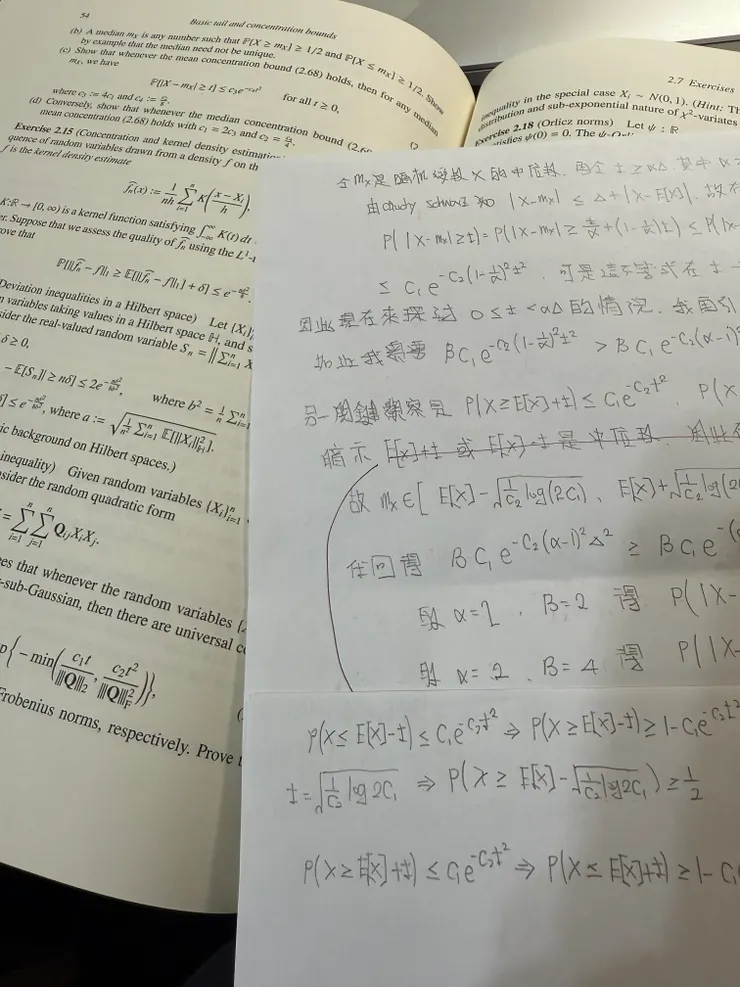 54
Basic tail and concentration bounds
(b) A median m_X is any number such that P[X ≥ m_X] ≥ 1/2 and P[X ≤ m_X] ≥ 1/2. Show
by example that the median need not be unique.
(c) Show that whenever the mean concentration bound (2.68) holds, then for any median
m_X, we have
P[|X − m_X| ≥ t] ≤ c₃e^{−c₄t²} for all t ≥ 0,
where c₃ := 4c₁ and c₄ := c₂/8.
(d) Conversely, show that whenever the median concentration bound
mean concentration (2.68) holds with c₁ = 2c₃ and c₂ = c₄/4.
Exercise 2.15 (Concentration and kernel density
quence of random variables drawn from a density f on th
f is the kernel density estimate
f̂_n(x) := 1/(nh) Σ_{i=1}^n K((x − X_i)/h),
K: R → [0, ∞) is a kernel function satisfying ∫_{−∞}^{∞} K(t)dt
er. Suppose that we assess the quality of f̂_n using the L¹
ove that
P[‖f̂_n − f‖₁ ≥ E[‖f̂_n − f‖₁] + δ] ≤ e
Deviation inequalities in a Hilbert space) Let {X_i}
n variables taking values in a Hilbert space H, and s
sider the real-valued random variable S_n = ‖Σ_{i=1}^n X
δ ≥ 0,
− E[S_n]| ≥ nδ] ≤ 2e where b² = 1/n Σ_{i=1}^n
δ] ≤ e , where a := √(1/n² Σ_{i=1}^n E[‖X_i‖²_H]).
ic background on Hilbert spaces.)
inequality) Given random variables {X_i}_{i=1}^n
sider the random quadratic form
= Σ_{i=1}^n Σ_{j=1}^n Q_{ij}X_iX_j.
es that whenever the random variables
-sub-Gaussian, then there are universal c
p{−min(c₁t/|||Q|||₂, c₂t²/|||Q|||²_F)},
Frobenius norms, respectively. Prove t
2.7 Exercises
inequality in the special case X_i ~ N(0, 1). (Hint: Th
distribution and sub-exponential nature of χ²-variates
Exercise 2.18 (Orlicz norms) Let ψ : R
satisfies ψ(0) = 0. The
令 m_X 是隨機變數 X 的中位數. 固定 t ≥ αΔ. 其中 α >
|X−m_X| ≤ Δ + |X−E[X]|. 故
P(|X−m_X| ≥ t) = P(|X−m_X| ≥ t/α + (1−1/α)t) ≤ P(|X−
≤ C₁e^{−C₂(1−1/α)²t²}. 可是這不等式在 t
因此現在來探討 0 ≤ t < αΔ 的情況. 我
如此我 βC₁e^{−C₂(1−1/α)²t²} > βC₁e^{−C₂(α−1)²
另一關鍵觀察是 P(X ≥ E[X]+t) ≤ C₁e^{−C₂t²}. P(X
暗示 E[X]+t 或 E[X]−t 是中位數. 因此
故 m_X ∈ [E[X] − √(1/C₂ log(2C₁)), E[X] + √(1/C₂ log(2C
代回得 βC₁e^{−C₂(α−1)²Δ²} ≥ βC₁e^{−(
取 α=2, β=2 得 P(|X−
取 α=2, β=4 得 P(|X−
P(X ≤ E[X]−t) ≤ C₁e^{−C₂t²} ⇒ P(X ≥ E[X]−t) ≥ 1−C₁e^{−C₂t²}
t = √(1/C₂ log 2C₁) ⇒ P(X ≥ E[X] − √(1/C₂ log 2C₁)) ≥ 1/2
P(X ≥ E[X]+t) ≤ C₁e^{−C₂t²} ⇒ P(X ≤ E[X]+t) ≥ 1−C₁